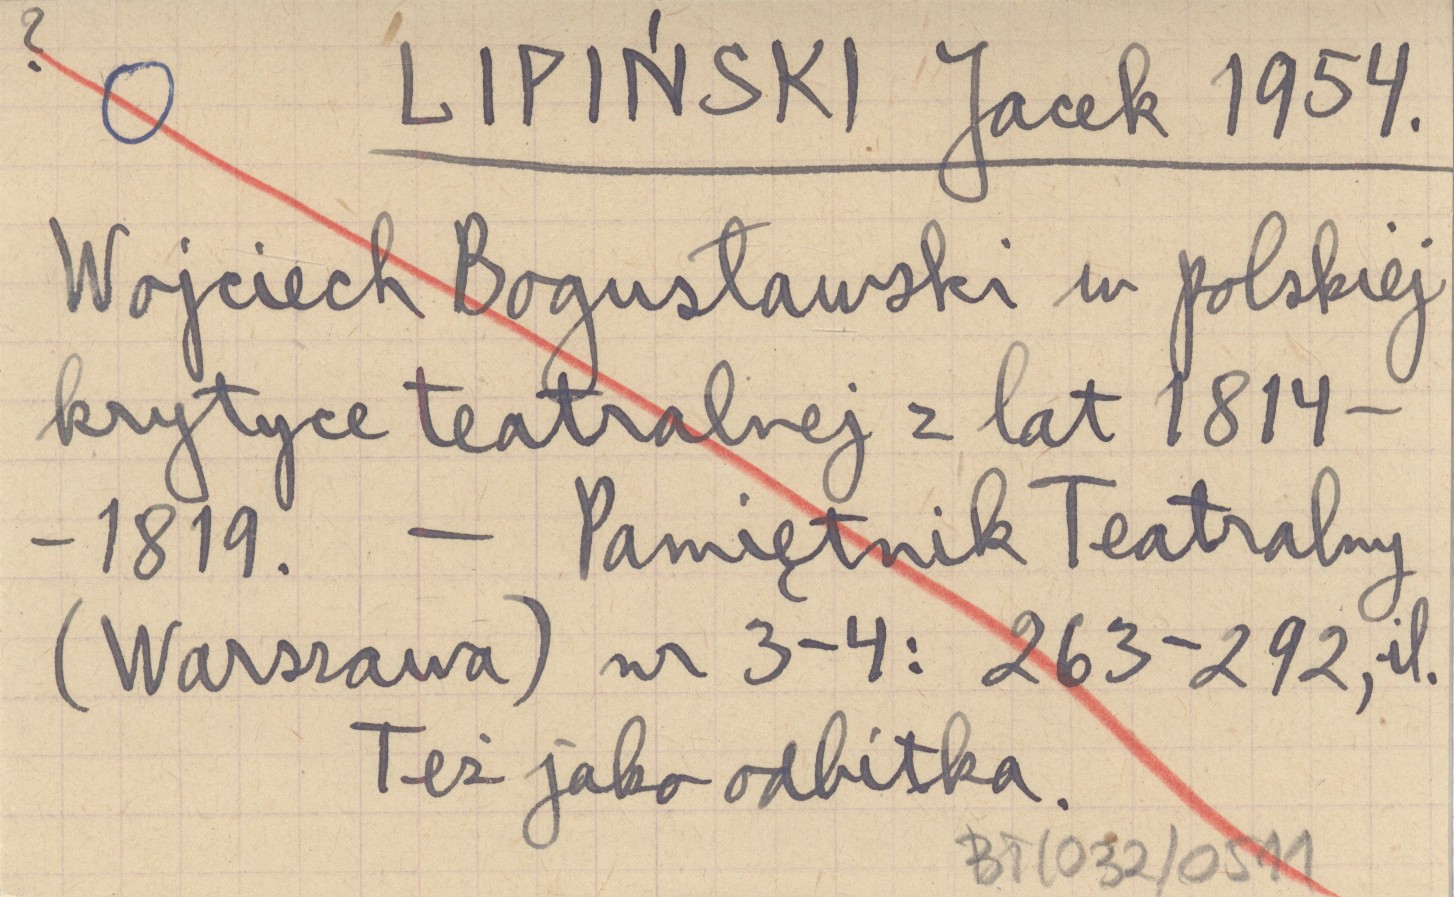 ?
LIPIŃSKI Jacek 1954.
Wojciech Bogusławski w polskiej
krytyce teatralnej z lat 1814-
-1819. — Pamiętnik Teatralny
(Warszawa) nr 3-4: 263-292, il.
Też jako odbitka.
BT(032)/0511